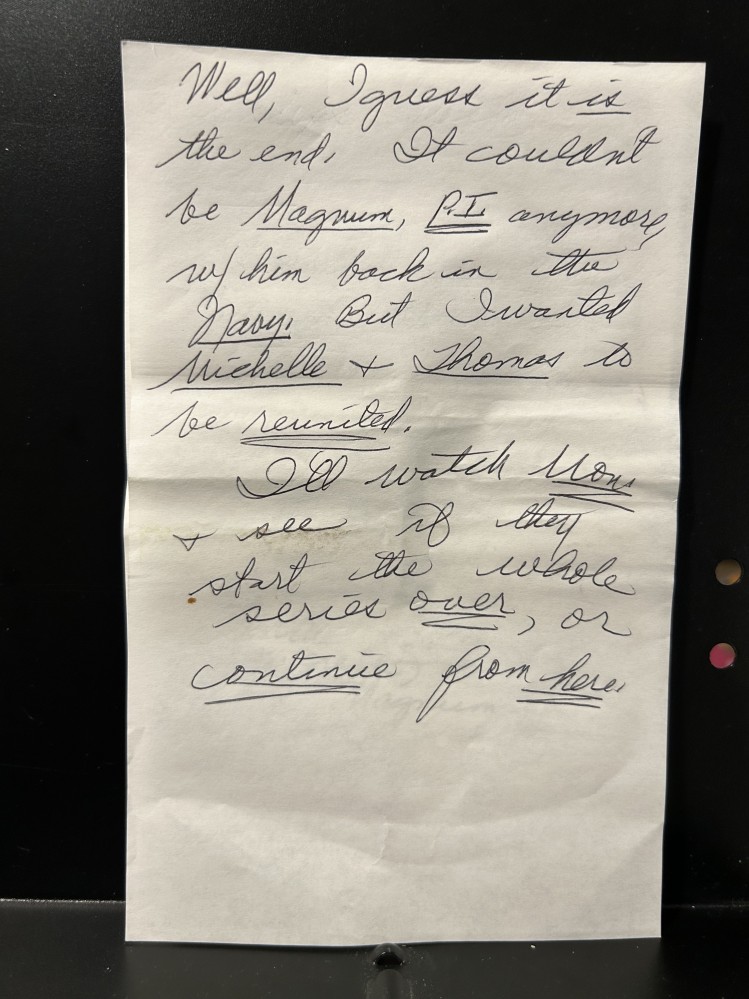 Well, I guess it is
the end. It couldn't
be Magnum, P.I. anymore,
w/ him back in the
Navy. But I wanted
Michelle + Thomas to
be reunited.
I'll watch Mon.
+ see if they
start the whole
series over, or
continue from here.